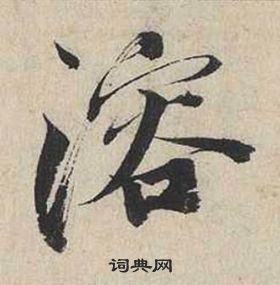 溶
词典网